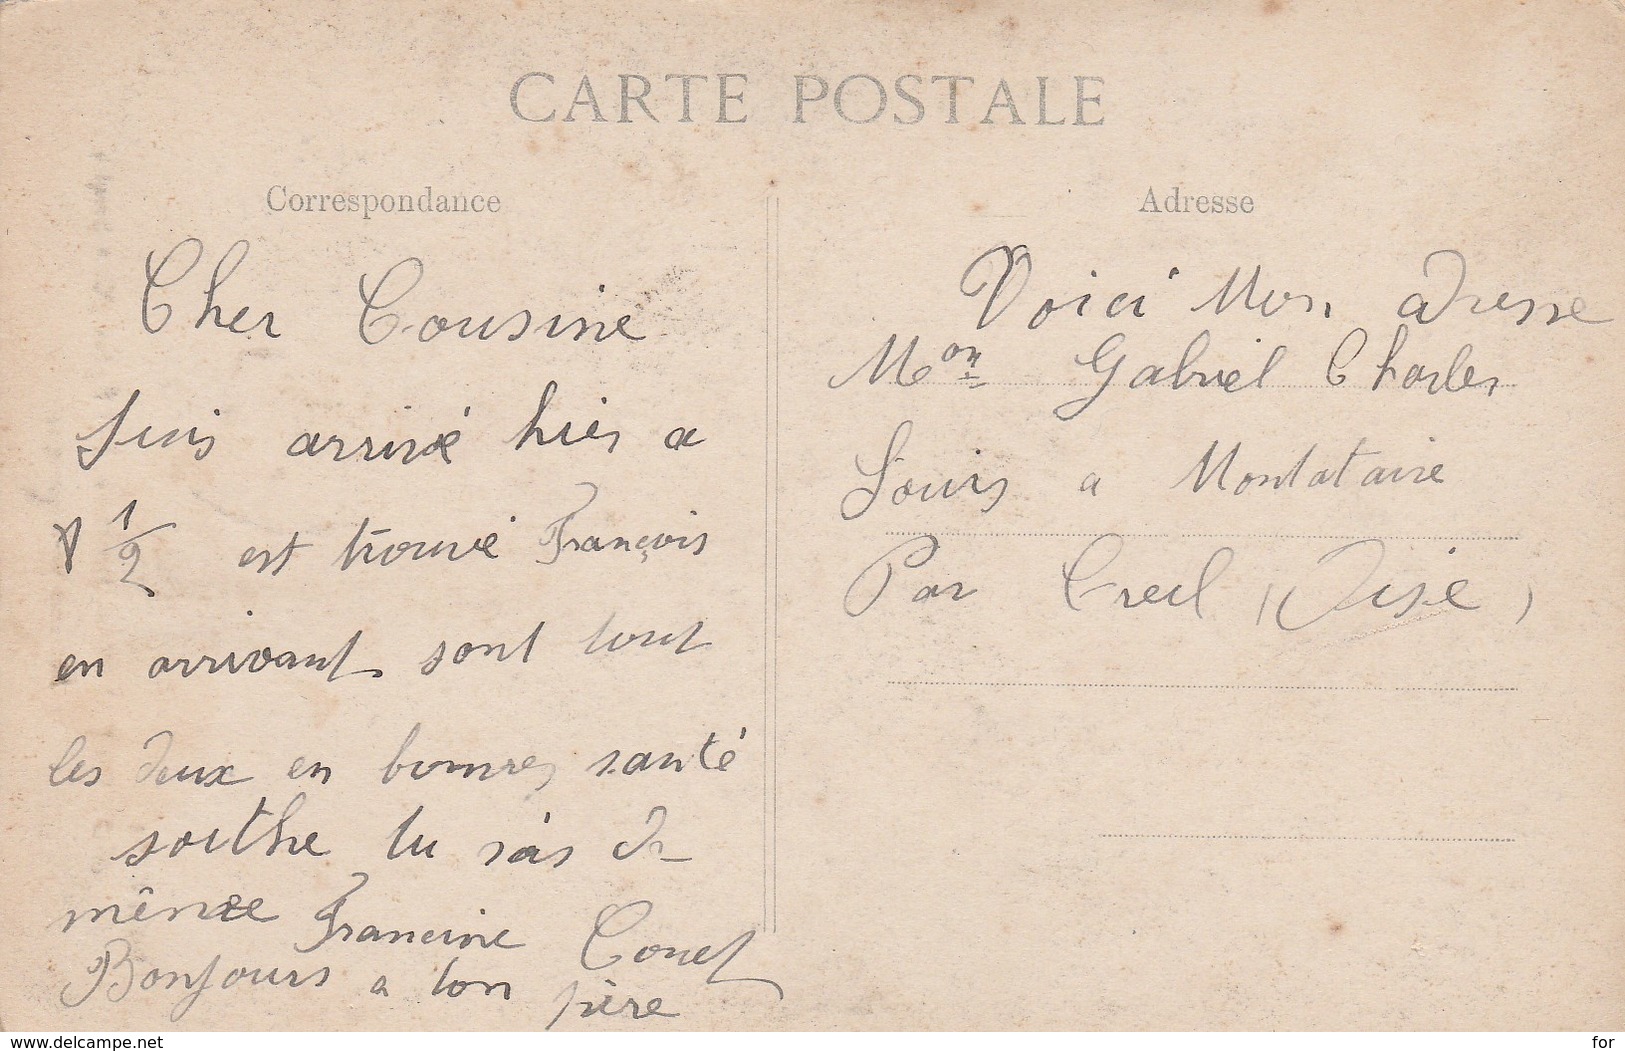 CARTE POSTALE
Correspondance
Cher Cousine
Suis arrivé hier a
1/2 est trouvé François
en arrivant sont tout
les deux en bonnes santé
soithe tu sais de
même Francine Couet
Bonjours a ton père
Adresse
Voici Mon adresse
Mon Gabriel Charles
Louis a Montataire
Par Creil (Oise)
www.delcampe.net
for